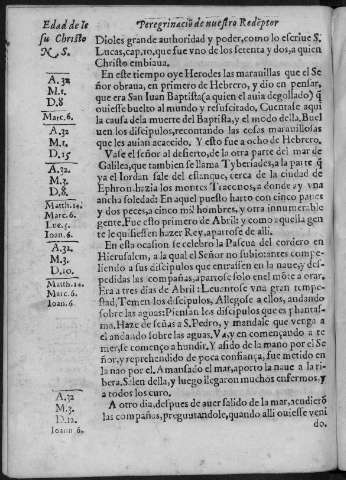 Edad de Ie
su Christo
N. S.
Peregrinaciõ de nuestro Redẽptor
Dioles grande authoridad y poder, como lo escriue S.
Lucas, cap. 10, que fue vno de los setenta y dos, a quien
Christo embiaua.
A. 32
M. 1.
D. 8
Marc. 6.
En este tiempo oye Herodes las marauillas que el Se
ñor obraua, en primero de Hebrero, y dio en pensar,
que era San Iuan Baptista (a quien el auia degollado) q̃
ouiesse buelto al mundo y resuscitado. Cuentase aqui
la causa dela muerte del Baptista, y el modo della, Buel
uen los discipulos, recontando las cosas marauillosas
que les auian acaecido. Y esto fue a ocho de Hebrero.
A. 32
M. 1.
D. 15
Vase el señor al desierto, de la otra parte del mar de
Galilea, que tambien se llama Tyberiades, a la parte q̃
ya el Iordan sale del estanque, cerca de la ciudad de
Ephron, hazia los montes Traconos, a donde ay vna
ancha soledad: En aquel puesto harto con cinco panes
y dos peces, a cinco mil hombres, y otra innumerable
gente. Fue esto primero de Abril, y como aquella gen
te le quisiessen hazer Rey, apartose de alli.
A. 32.
M. 3.
D. 8.
Matth. 14.
Marc. 6.
Luc. 9.
Ioan. 6.
En esta ocasion se celebro la Pascua del cordero en
Hierusalem, a la qual el Señor no subio: antes compe-
liendo a sus discipulos que entrassen en la naue, y des-
pedidas las compañas, apartose solo en el mõte a orar.
Era a tres dias de Abril: Leuantose vna gran tempe-
stad, Temen los discipulos, Allegose a ellos, andando
sobre las aguas: Piensan los discipulos que es phantas-
ma. Haze de señas a S. Pedro, y mandale que venga a
el andando sobre las aguas, Va, y en comenzando a te
mer, se començo a hundir. Y asido de la mano por el Se
ñor, y reprehendido de poca confiança, fue metido en
la nao por el. Amansado el mar, aporto la naue a la ri-
bera. Salen della, y luego llegaron muchos enfermos, y
a todos los curo.
A. 32.
M. 3.
D. 10.
Matth. 14.
Marc. 6.
Ioan. 6.
A otro dia, despues de auer salido de la mar, acudierõ
las compañas, preguntandole, quando alli ouiesse veni
do.
A. 32
M. 3.
D. 12.
Ioann 6.